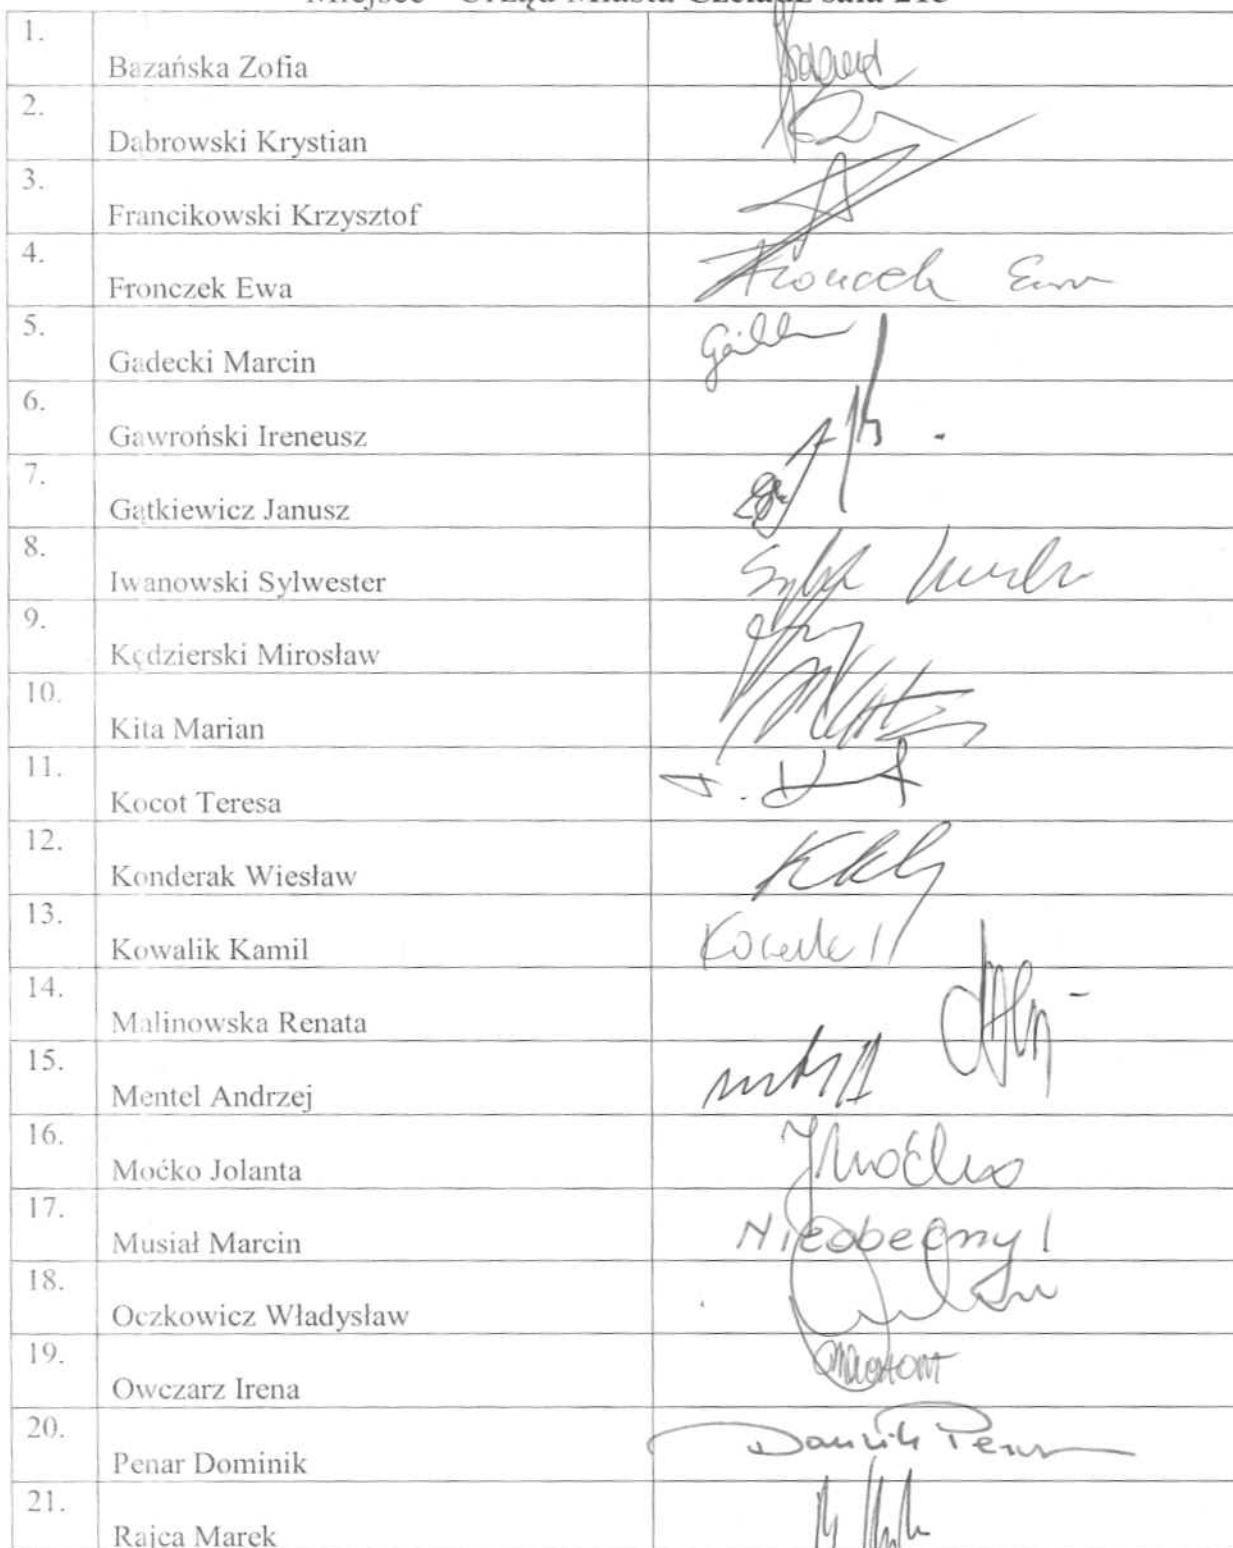 Miejsce - Urząd Miasta Czeladź sala 213
1.
Bazańska Zofia
2.
Dąbrowski Krystian
3.
Francikowski Krzysztof
4.
Fronczek Ewa
Fronczek Ewa
5.
Gadecki Marcin
6.
Gawroński Ireneusz
7.
Gątkiewicz Janusz
8.
Iwanowski Sylwester
9.
Kędzierski Mirosław
10.
Kita Marian
11.
Kocot Teresa
12.
Konderak Wiesław
13.
Kowalik Kamil
14.
Malinowska Renata
15.
Mentel Andrzej
16.
Moćko Jolanta
JMoćko
17.
Musiał Marcin
Nieobecny!
18.
Oczkowicz Władysław
19.
Owczarz Irena
20.
Penar Dominik
Dominik Penar
21.
Rajca Marek